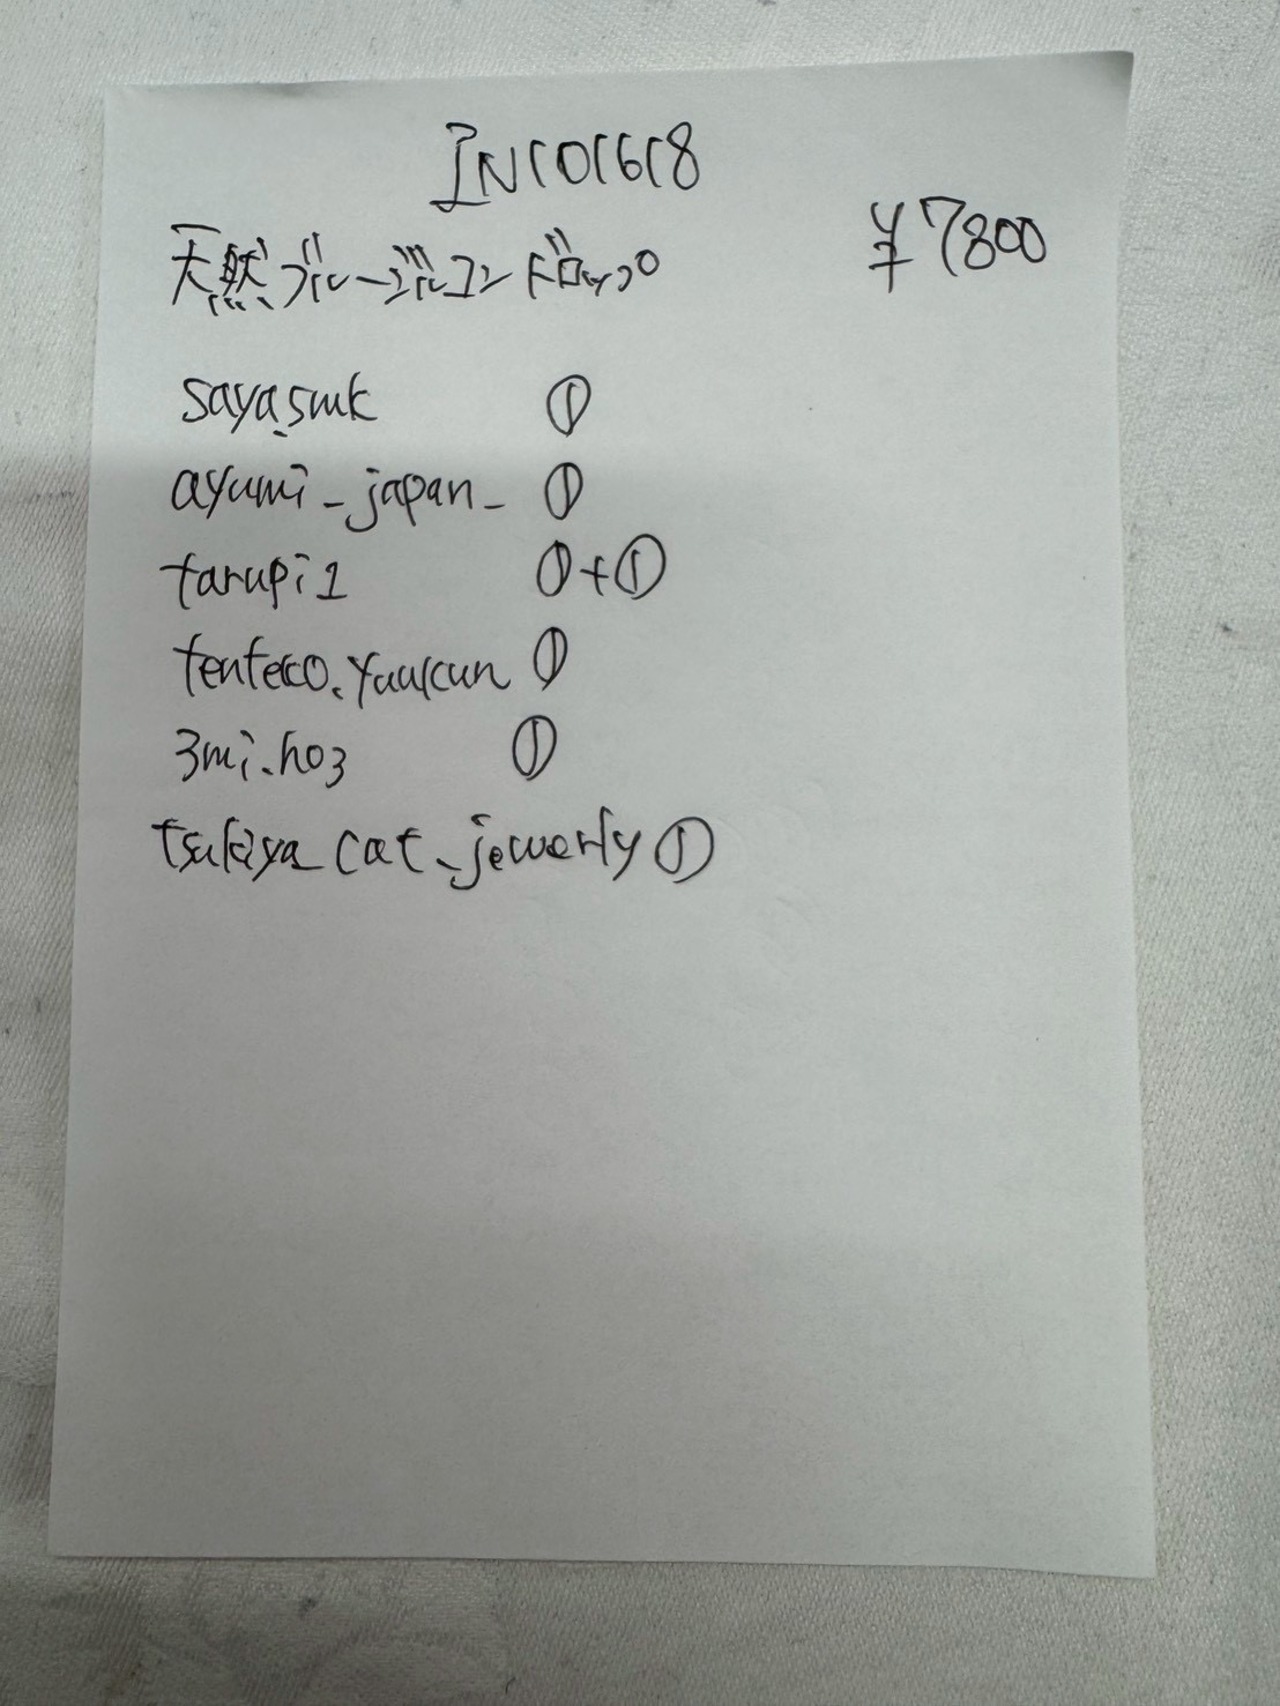 IN101618
天然ブルージルコンドロップ
¥7800
saya.smk ①
ayumi_japan_ ①
tarupi1 ①+①
tenteco.yuukun ①
3mi.ho3 ①
tsukiya_cat_jewerly ①